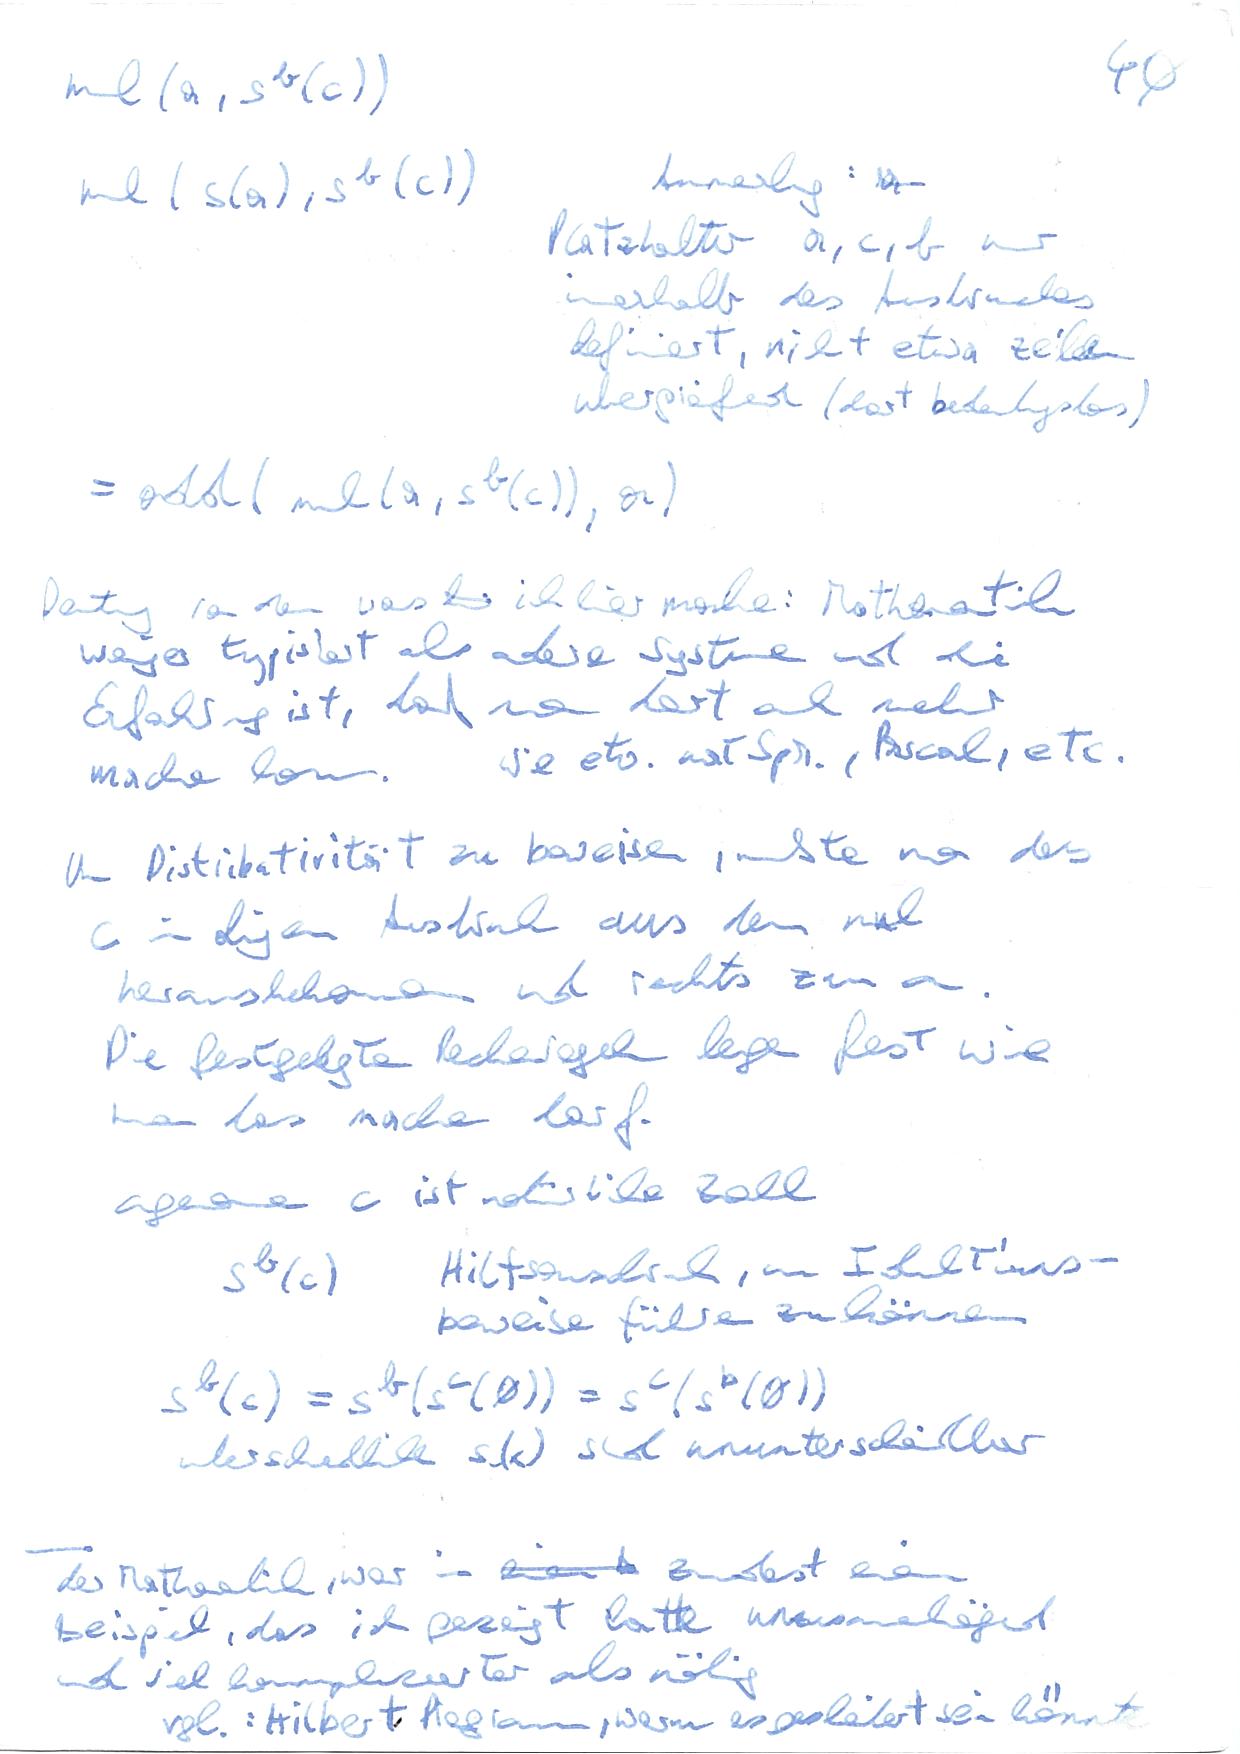 40
mul(a, s^b(c))
mul(s(a), s^b(c))
Anmerkg:
Platzhalter a, c, b nur
innerhalb des Ausdruckes
definiert, nicht etwa zeilen
übergreifend (dort bedeutungslos)
= add(mul(a, s^b(c)), a)
Deutung von dem was ich hier mache: Mathematik
weniger typisiert als andere Systeme und die
Erfahrung ist, daß man dort auch mehr
machen kann. wie etw. nat Spr., Pascal, etc.
Um Distributivität zu beweisen, müßte man das
c in obigem Ausdruck aus dem mul
herausbekommen und rechts zum a.
Die festgelegten Rechenregeln legen fest wie
man das machen darf.
angenommen c ist natürliche Zahl
s^b(c) Hilfsausdruck, um Induktions-
beweise führen zu können
s^b(c) = s^b(s^c(0)) = s^c(s^b(0))
unterschiedliche s(x) sind ununterscheidbar
der Mathematik, war in zumindest einem
Beispiel, das ich gezeigt hatte
und viel komplizierter als nötig
vgl.: Hilbert Programm, warum es gescheitert sein könnte